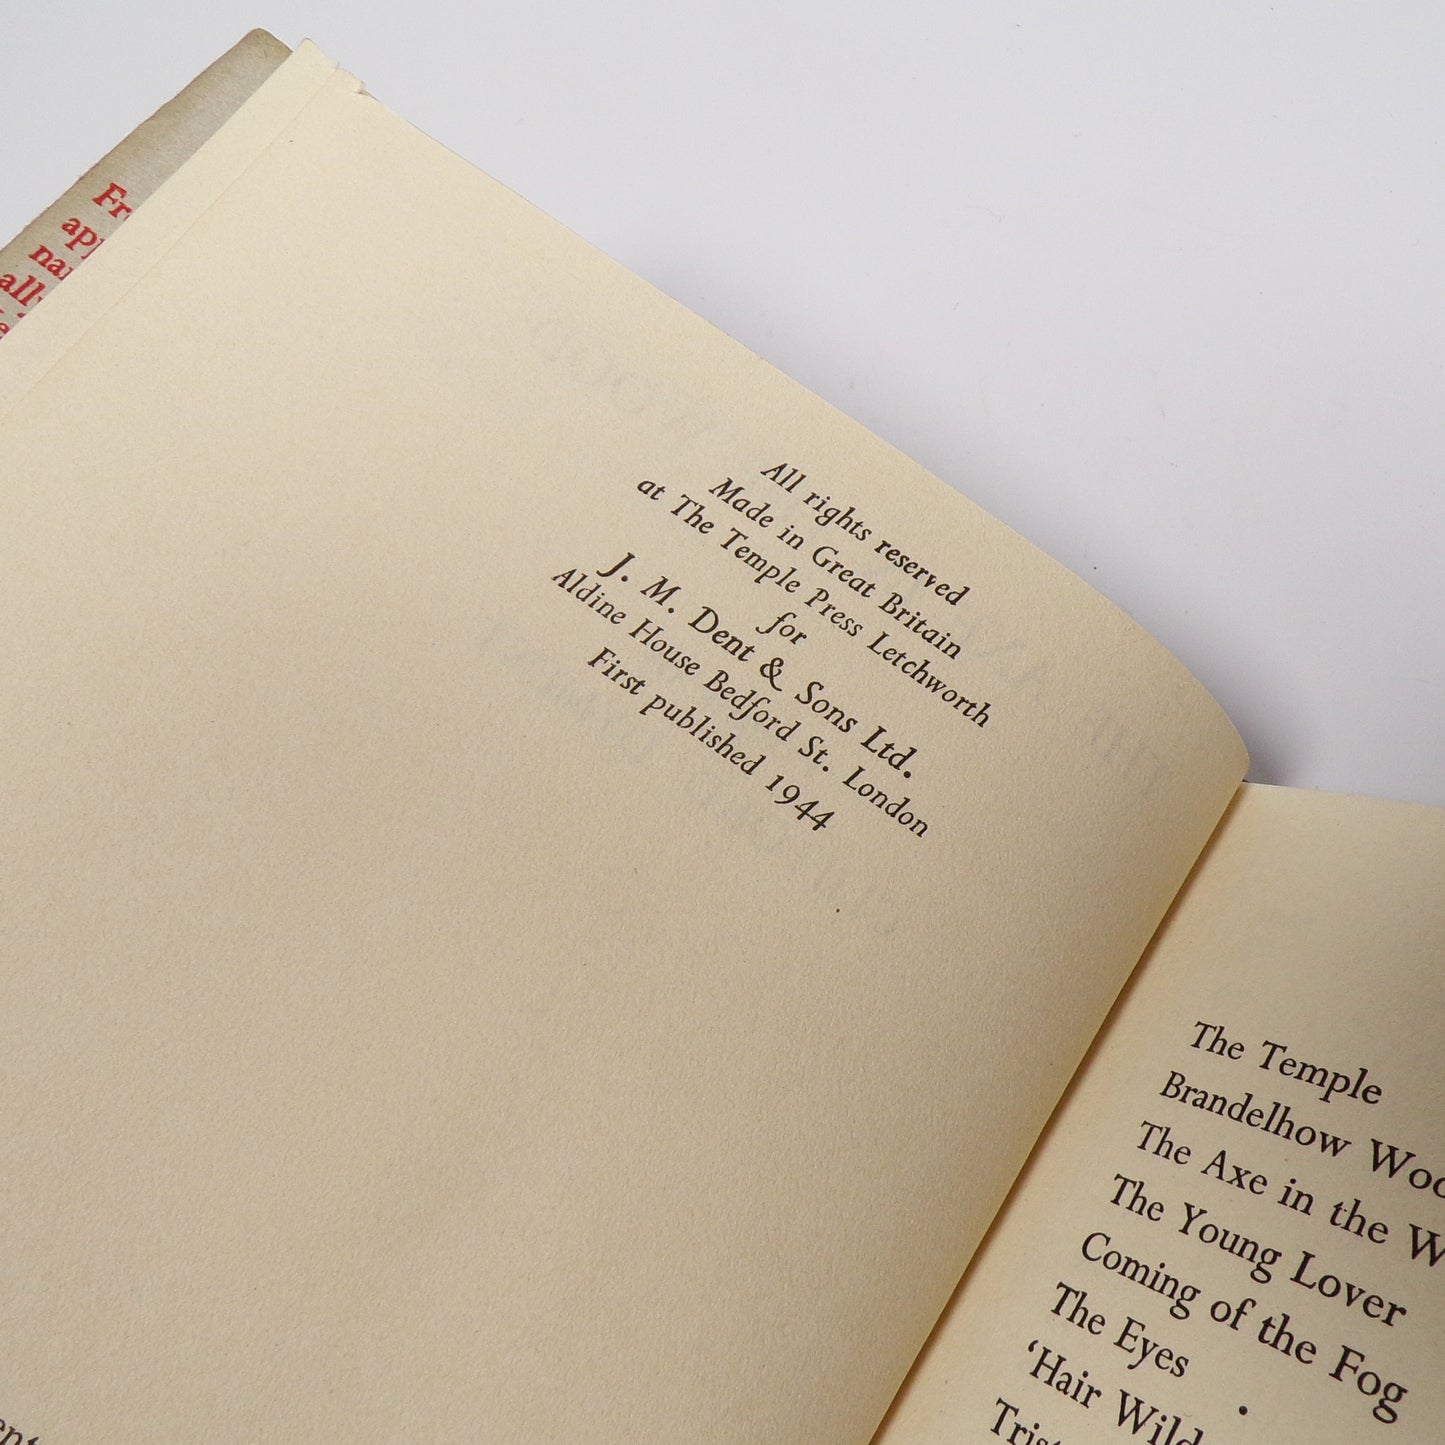 All rights reserved
Made in Great Britain
at The Temple Press Letchworth
for
J. M. Dent & Sons Ltd.
Aldine House Bedford St. London
First published 1944
The Temple
Brandelhow
The Axe in the
The Young Lover
Coming of the Fog
The Eyes
'Hair